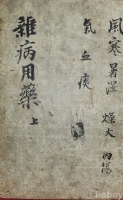 風寒暑濕 燥火 內傷
氣血痰
雜病用藥 上